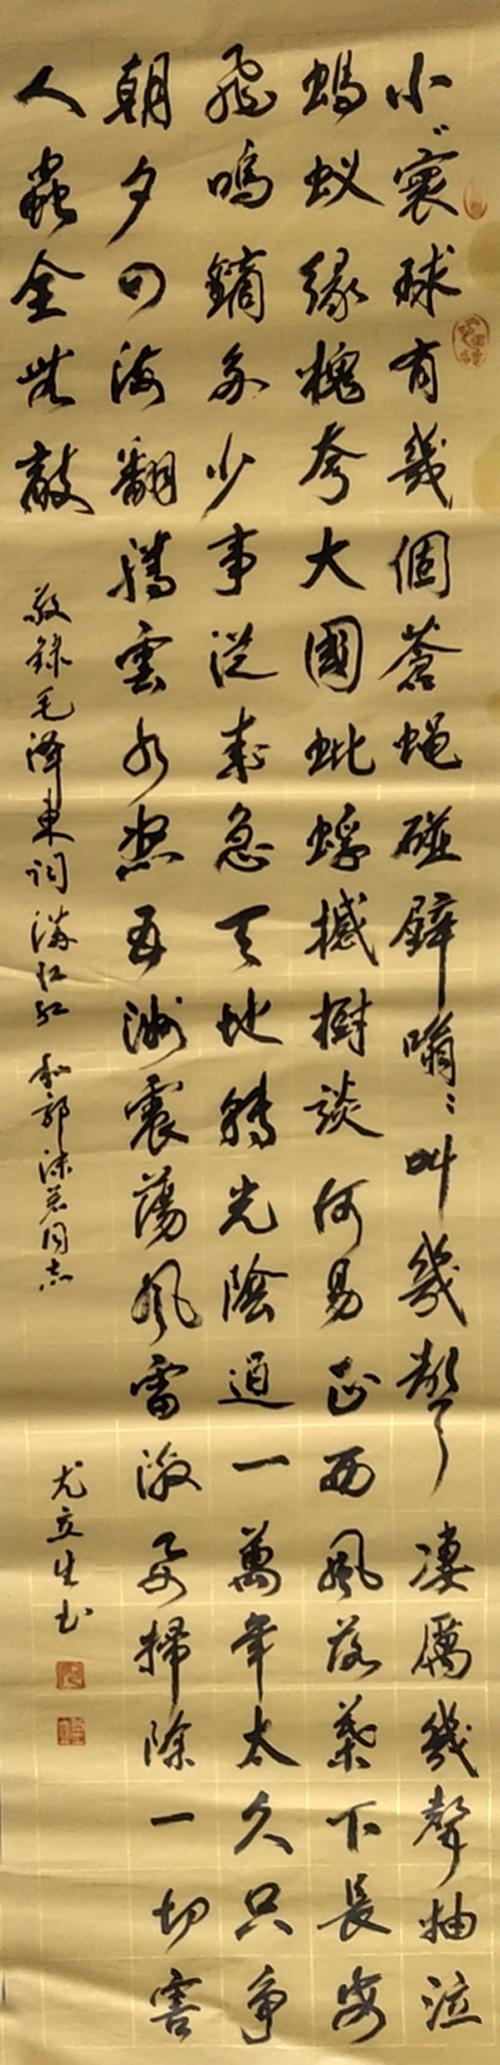 小〻寰球有幾個蒼蠅碰壁嗡〻叫幾聲凄厲幾聲抽泣
螞蚁緣槐夸大國蚍蜉撼樹談何易正西風落葉下長安
飛鳴鏑多少事從来急天地轉光陰迫一萬年太久只争
朝夕四海翻騰雲水怒五洲震蕩風雷激要掃除一切害
人蟲全無敵
敬錄毛泽東词满江红 和郭沫若同志
尤立生书